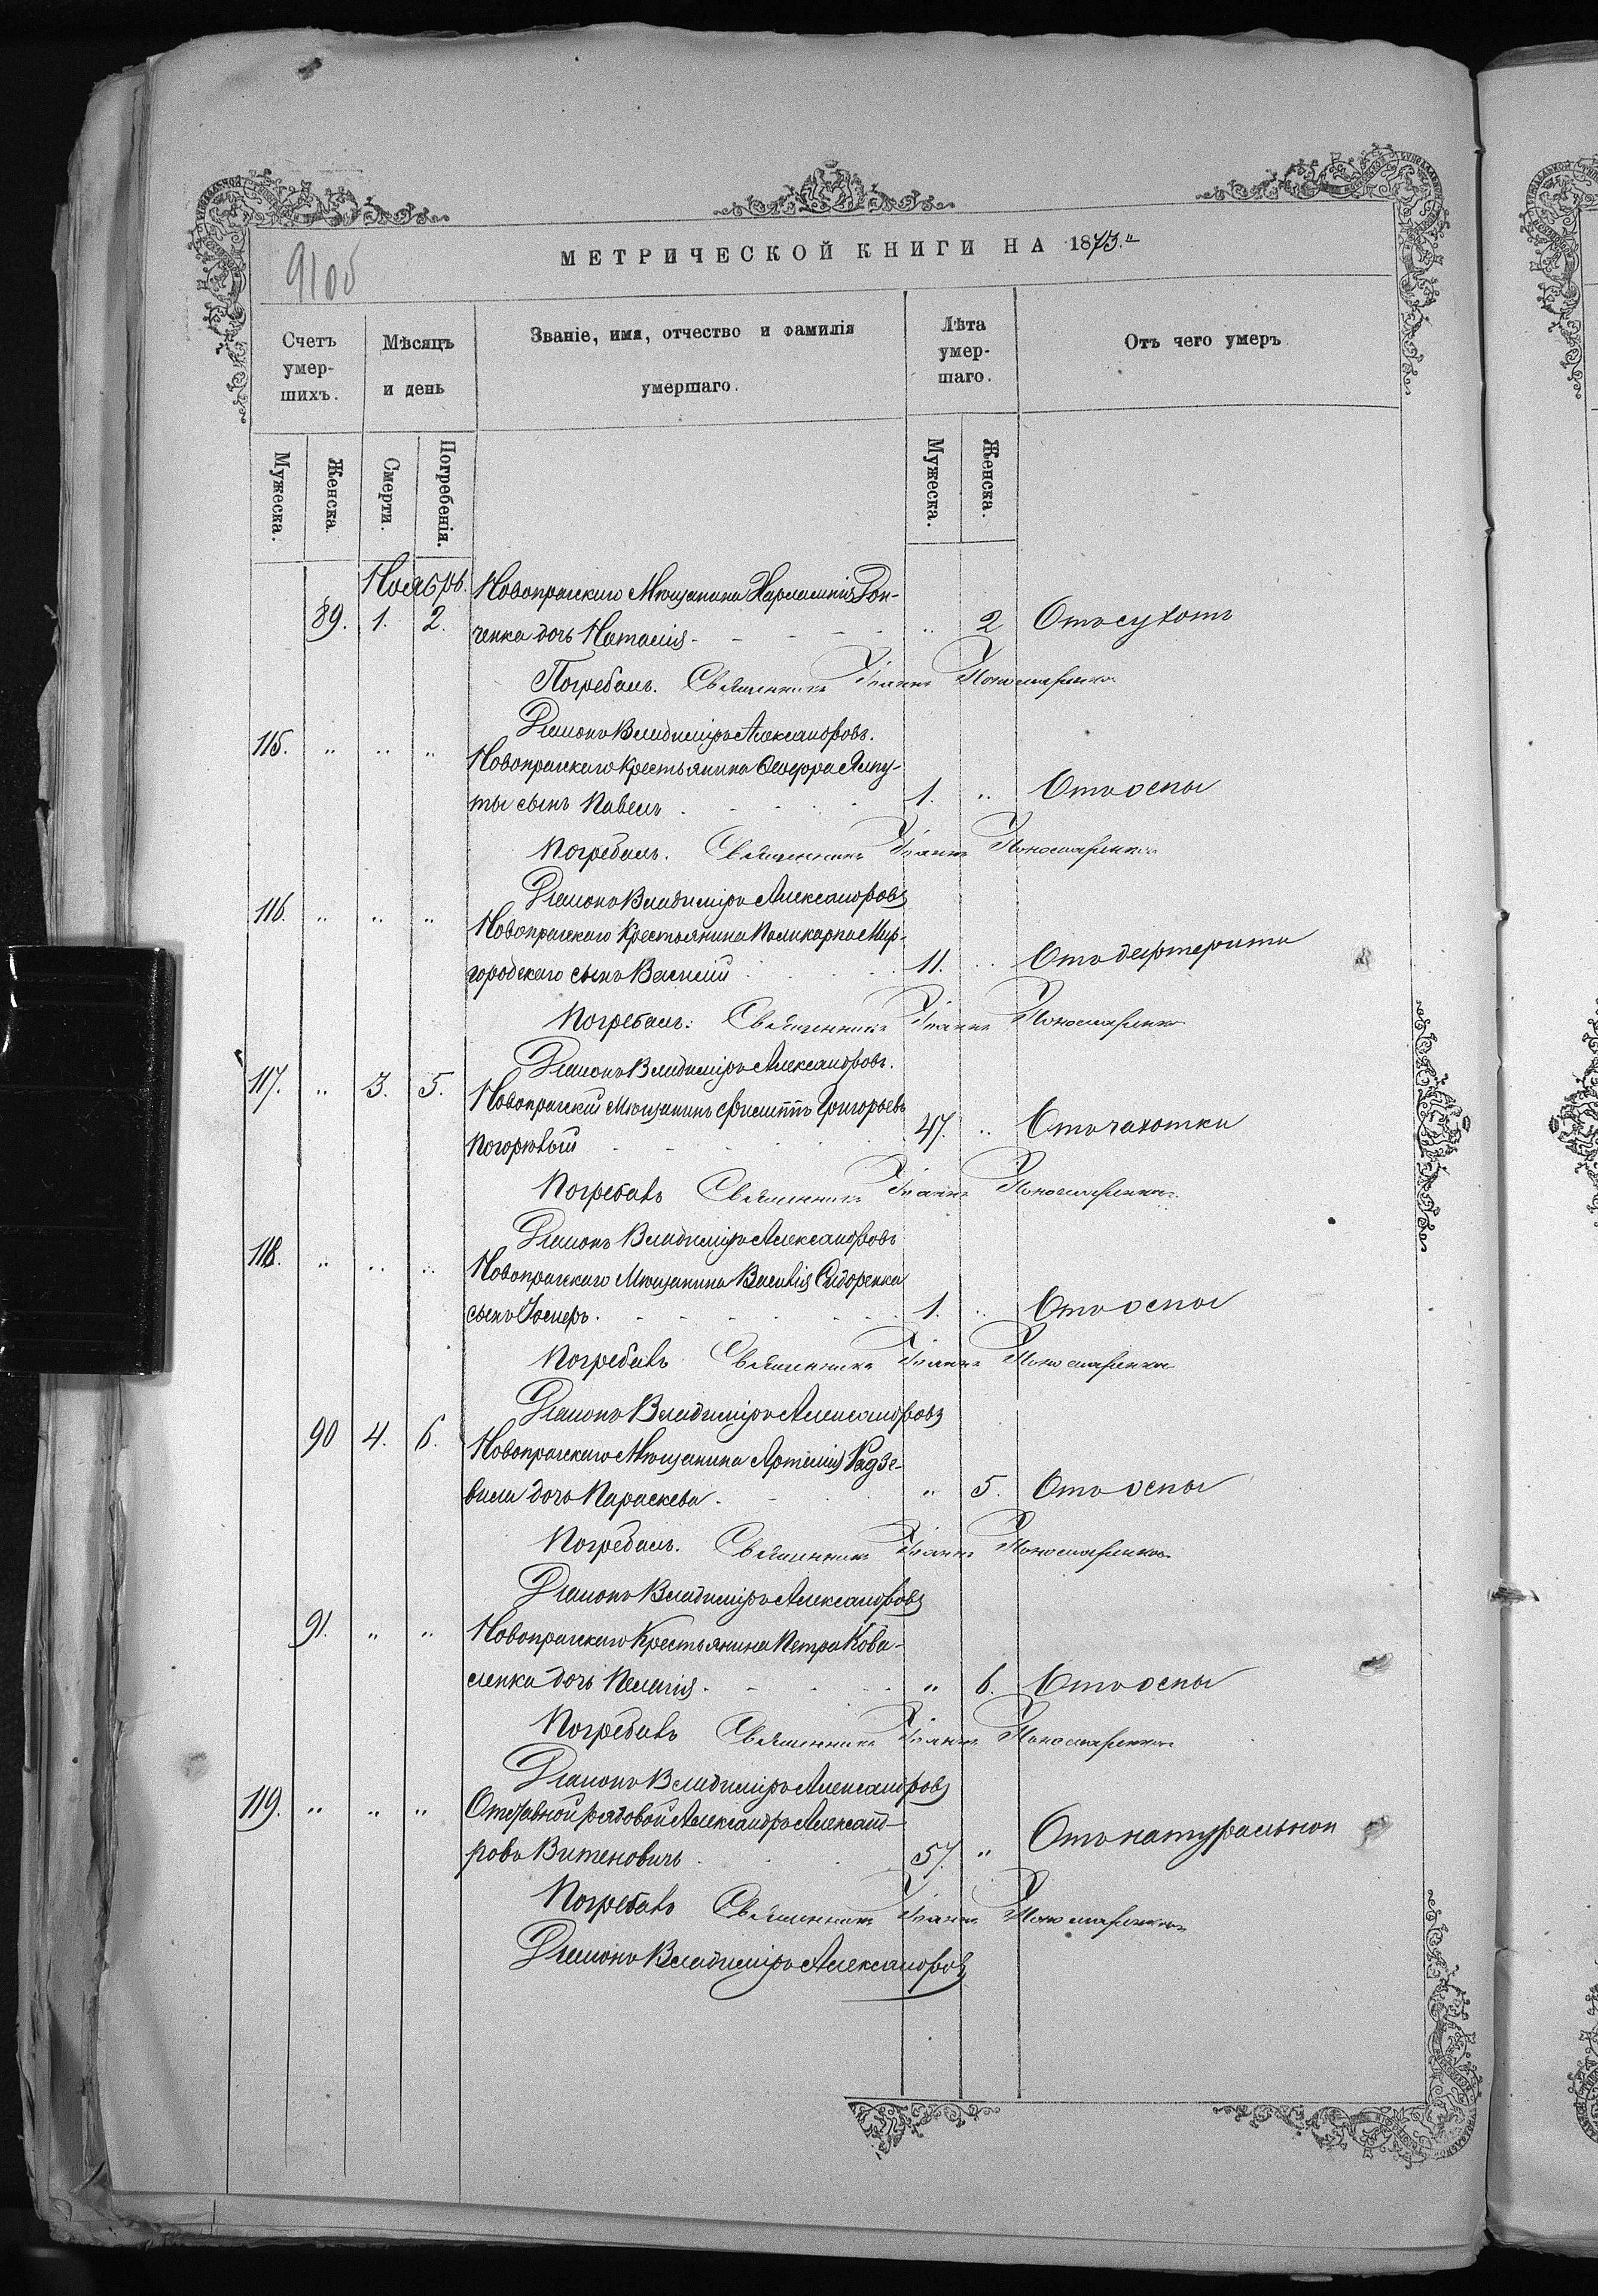 МЕТРИЧЕСКОЙ КНИГИ НА 1873.
9105
Счетъ умер-шихъ.
Мѣсяцъ и день
Званіе, имя, отчество и фамилія умершаго.
Лѣта умер-шаго.
Отъ чего умеръ
Мужеска. Женска. Смерти. Погребенія. Мужеска. Женска.
Ноябрь. Новопражскаго Мѣщанина Харлампія Гон-
89. 1. 2. ченка дочь Наталія - - - - „ 2 Отъ сухотъ
Погребалъ. Священникъ Іоаннъ Пономаренко
Діаконъ Владиміръ Александровъ.
115. „ „ „ Новопражскаго Крестьянина
ты сынъ Павелъ - - - - 1. „ Отъ оспы
Погребалъ. Священникъ Іоаннъ Пономаренко
Діаконъ Владиміръ Александровъ
116. „ „ „ Новопражскаго Крестьянина Поликарпа Мир-
городскаго сынъ Василій - - - 11. „ Отъ дифтерита
Погребалъ: Священникъ Іоаннъ Пономаренко
Діаконъ Владиміръ Александровъ.
117. „ 3. 5. Новопражскій Мѣщанинъ Филиппъ Григорьевъ
Погорѣлый - - - - 47. „ Отъ чахотки
Погребалъ Священникъ Іоаннъ Пономаренко
Діаконъ Владиміръ Александровъ
118. „ „ „ Новопражскаго Мѣщанина Василія Сидоренка
сынъ Іосифъ. - - - - 1. „ Отъ оспы
Погребалъ Священникъ Іоаннъ Пономаренко
Діаконъ Владиміръ Александровъ
90 4. 6. Новопражскаго Мѣщанина Артемія Радзе-
вила дочь Параскева. - - - „ 5. Отъ оспы
Погребалъ. Священникъ Іоаннъ Пономаренко
Діаконъ Владиміръ Александровъ
91. „ „ Новопражскаго Крестьянина Петра Кова-
ленка дочь Пелагія. - - - „ 6. Отъ оспы
Погребалъ Священникъ Іоаннъ Пономаренко
Діаконъ Владиміръ Александровъ
119. „ „ „ Отставной рядовой Александръ Александ-
ровъ Витеновичъ - - - 57. „ Отъ натуральной
Погребалъ Священникъ Іоаннъ Пономаренко
Діаконъ Владиміръ Александровъ